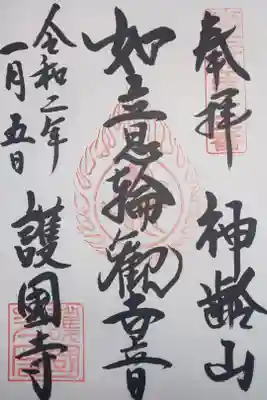 奉拝
神齢山
如意輪観音
護國寺
令和二年
一月五日